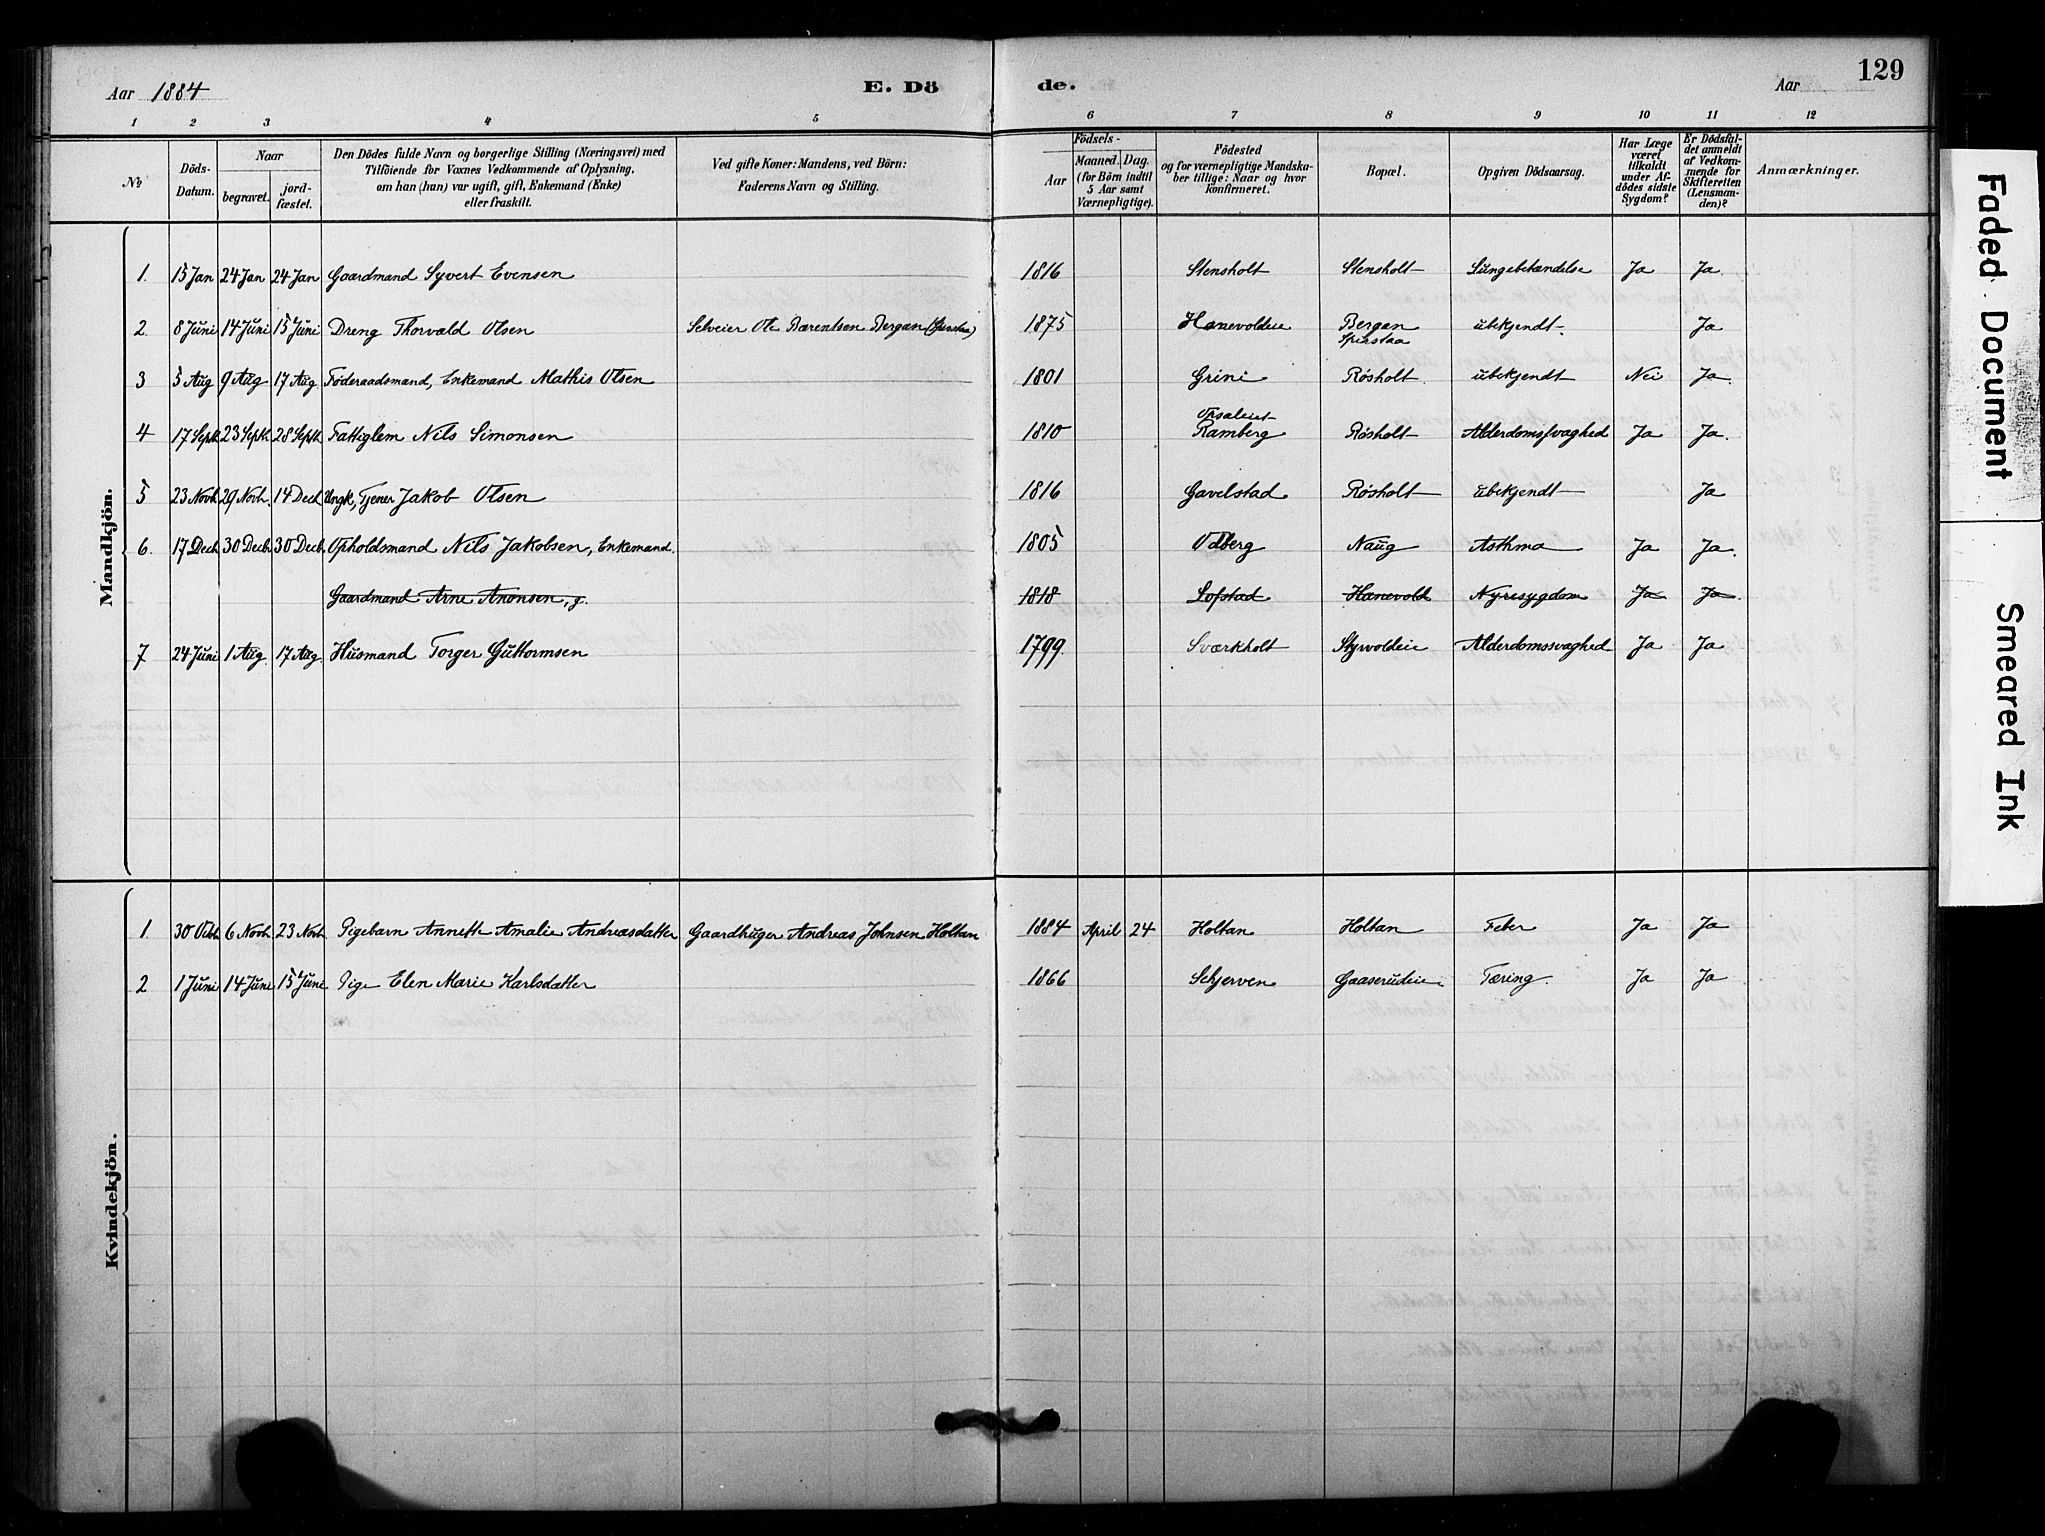 Aar 1884 E. Dö de. Aar 129
1 2 3 4 5 6 7 8 9 10 11 12
№ Döds-Datum. Naar begravet. jordfæstet. Den Dödes fulde Navn og borgerlige Stilling (Næringsvei) med
Tilföiende for Voxnes Vedkommende af Oplysning,
om han (hun) var ugift, gift, Enkemand (Enke)
eller fraskilt.
Ved gifte Koner: Mandens, ved Börn:
Faderens Navn og Stilling.
Födsels-
Aar Maaned. Dag.
(for Börn indtil
5 Aar samt
Værnepligtige).
Födested
og for værnepligtige Mandska-
ber tillige: Naar og hvor
konfirmeret.
Bopæl.
Opgiven Dödsaarsag.
Har Læge
været
tilkaldt
under Af-
dödes sidste
Sygdom?
Er Dödsfal-
det anmeldt
af Vedkom-
mende for
Skifteretten
(Lensman-
den)?
Anmærkninger.
Mandkjön.
1. 15 Jan 24 Jan 24 Jan Gaardmand Syvert Evensen 1816 Stensholt Stensholt Lungebetændelse Ja Ja
2. 8 Juni 14 Juni 15 Juni Dreng Thorvald Olsen Selveier Ole Bærentsen Bergan 1875 Hanevoldeie Bergan ubekjendt. Ja
Spirstaa
3 5 Aug 9 Aug 17 Aug Føderaadsmand, Enkemand Mathis Olsen 1801 Grini Røsholt ubekjendt Nei Ja.
Opsaleiet
4 17 Sept 23 Sept 28 Sept Fattiglem Nils Simonsen 1810 Ramberg Røsholt Alderdomssvaghed Ja Ja.
5 23 Novb 29 Novb. 14 Decb Ungk, Tjener Jakob Olsen 1816 Gavelstad Røsholt ubekjendt Ja
6. 17 Decb 30 Decb 30 Decb Opholdsmand Nils Jakobsen, Enkemand. 1805 Odberg Naug Asthma Ja Ja.
Gaardmand Arne Anonsen, g. 1818 Lofstad Hanevold Nyresygdom Ja Ja.
7 24 Juni 1 Aug. 17 Aug Husmand Torger Guttormsen 1799 Sværkholt Styrvoldeie Alderdomssvaghed Ja Ja
Kvindekjön.
1. 30 Octb 6 Novb 23 Novb Pigebarn Annette Amalie Andreasdatter Gaardbruger Andreas Johnsen Holtan 1884 April 24 Holtan Holtan Feber Ja Ja
2 1 Juni 14 Juni 15 Juni Pige Elen Marie Karlsdatter 1866 Schjerven Gaaserudeie Tæring. Ja Ja
Faded Document
Smeared Ink